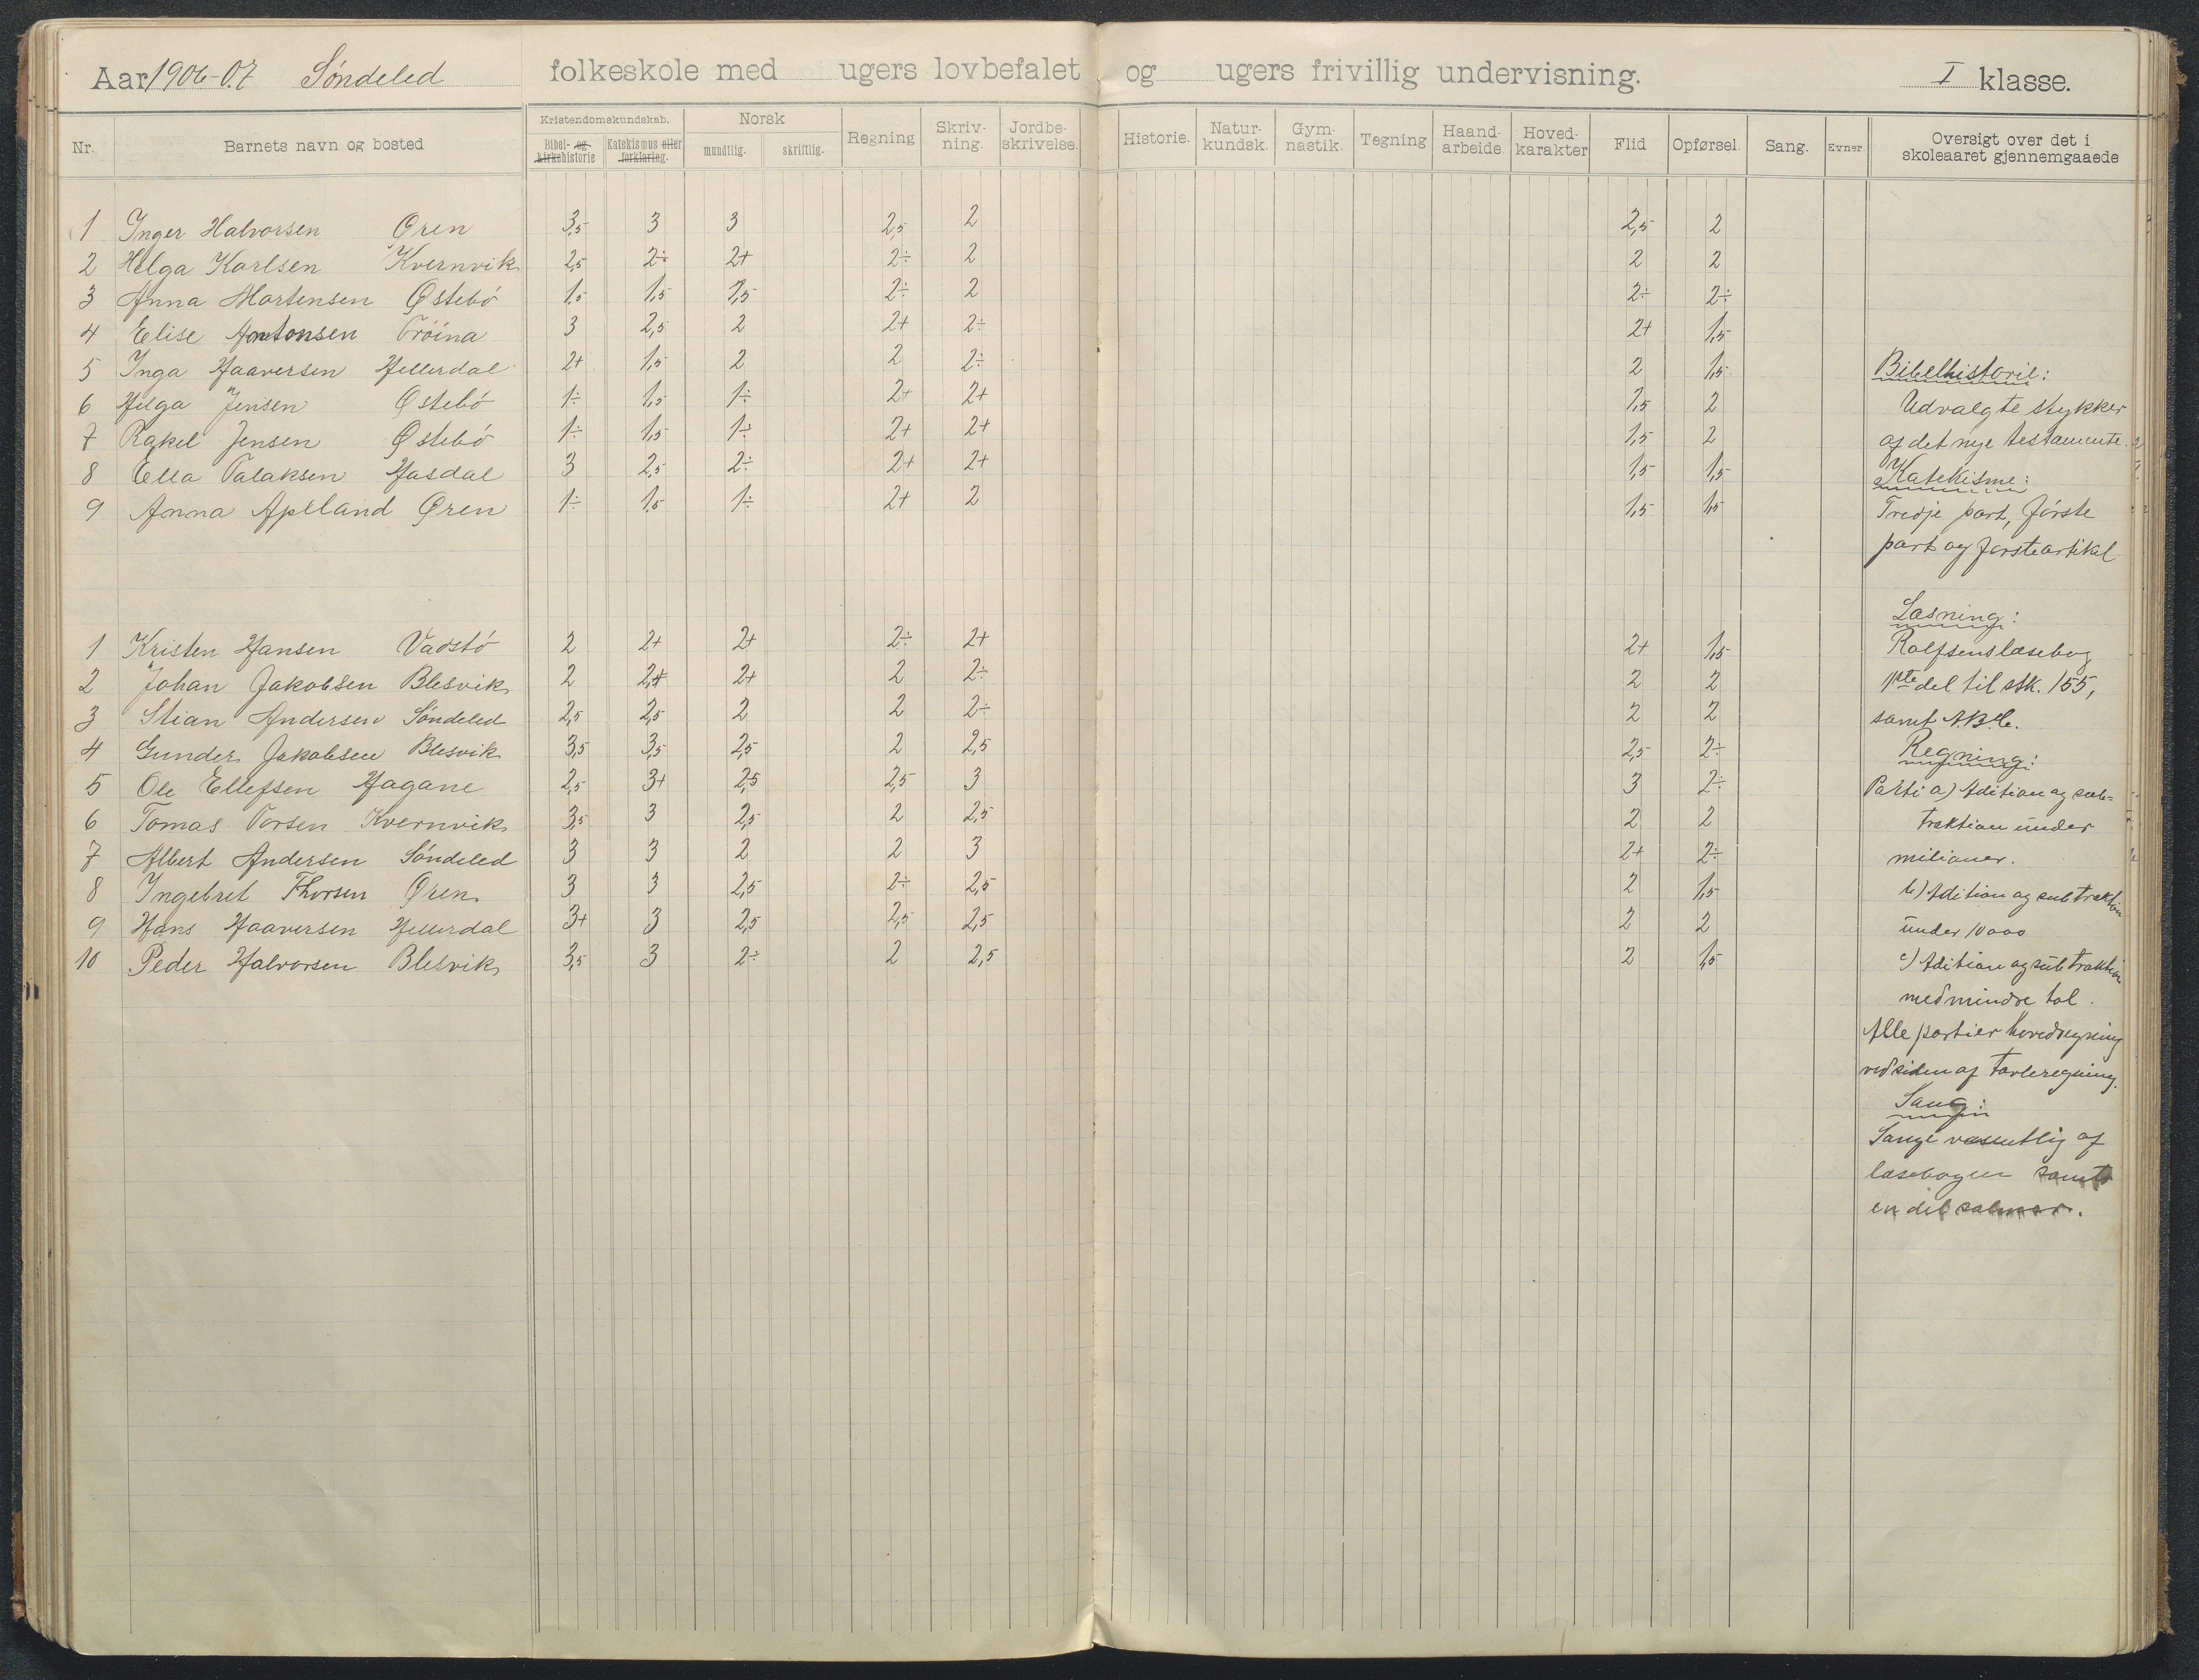 Aar 1906-07 Søndeled folkeskole med ugers lovbefalet og ugers frivillig undervisning. I klasse.
Nr. Barnets navn og bosted Kristendomskundskab. Bibel- og kirkehistorie Katekismus eller forklaring. Norsk mundtlig. skriftlig. Regning Skriv-ning. Jordbe-skrivelse. Historie. Natur-kundsk. Gym-nastik. Tegning Haand-arbeide. Hoved-karakter Flid Opførsel. Sang. Evner Oversigt over det i skoleaaret gjennemgaaede
1 Inger Halvorsen Øren 3,5 3 3 2,5 2 2,5 2
2 Helga Karlsen Kvernvik 2,5 2÷ 2+ 2÷ 2 2 2
3 Anna Martensen Østebö 1,5 1,5 1,5 2÷ 2 2÷ 2÷
4 Elise Antonsen Tröina 3 2,5 2 2+ 2÷ 2+ 1,5
5 Inga Haaversen Hellerdal 2+ 1,5 2 2 2÷ 2 1,5
6 Helga Jensen Østebö 1÷ 1,5 1÷ 2+ 2+ 1,5 2
7 Rakel Jensen Østebö 1÷ 1,5 1÷ 2+ 2+ 1,5 2
8 Ella Talaksen Hasdal 3 2,5 2÷ 2+ 2+ 1,5 1,5
9 Anna Apeland Øren 1÷ 1,5 1÷ 2+ 2 1,5 1,5
1 Kristen Hansen Vadstö 2 2+ 2+ 2÷ 2+ 2+ 1,5
2 Johan Jakobsen Blesvik 2 2+ 2+ 2 2÷ 2 2
3 Stian Andersen Söndeled 2,5 2,5 2 2 2÷ 2 2
4 Gunder Jakobsen Blesvik 3,5 3,5 2,5 2 2,5 2,5 2÷
5 Ole Ellefsen Hagane 2,5 3+ 2,5 2,5 3 3 2÷
6 Tomas Torsen Kvernvik 3,5 3 2,5 2 2,5 2 2
7 Albert Andersen Söndeled 3 3 2 2 3 2+ 2÷
8 Ingebret Thorsen Øren 3 3 2,5 2÷ 2,5 2 1,5
9 Hans Haaversen Hellerdal 3+ 3 2,5 2,5 2,5 2 2
10 Peder Halvorsen Blesvik 3,5 3 2÷ 2 2,5 2 1,5
Bibelhistorie:
Udvalgte stykker
af det nye testamente.
Katekisme:
Tredje part, förste
part og förste artikel
Læsning:
Rolfsens læsebog
1ste del til stk. 155,
samt A.B.C.
Regning:
Parti a) Adition og sub-
traktion under
milioner.
b) Adition og subtraktion
under 10000
c) Adition og subtraktion
med mindre tal.
Alle partier hovedregning
ved siden af tavleregning.
Sang:
Sange væsentlig af
læsebogen samt
en del salmer.